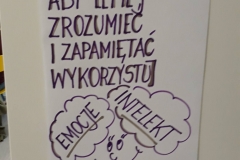 ABY LEPIEJ
ZROZUMIEĆ
I ZAPAMIĘTAĆ
WYKORZYSTUJ
EMOCJE
INTELEKT